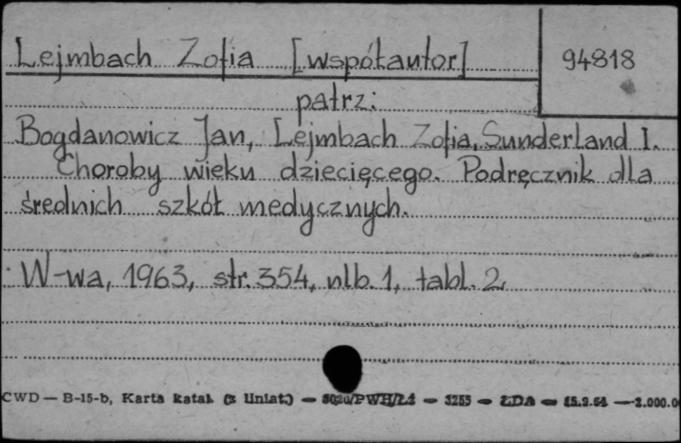 Lejmbach Zofia [współautor]
94818
patrz:
Bogdanowicz Jan, Lejmbach Zofia, Sunderland I.
Choroby wieku dziecięcego. Podręcznik dla
średnich szkół medycznych.
W-wa, 1963, str. 354, nlb. 1, tabl. 2,
CWD — B-15-b, Karta katal. (z liniat.) — — 3253 — ŁDA — —